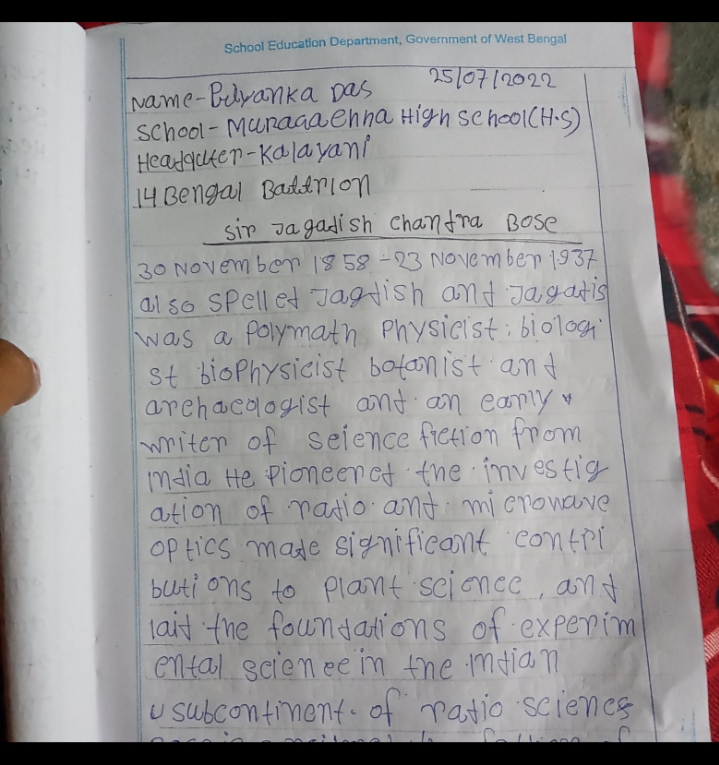 School Education Department, Government of West Bengal
25/07/2022
Name-Priyanka Das
School-Muragachha High School(H.S)
Headquter-Kalayani
14 Bengal Battrion
Sir Jagadish Chandra Bose
30 November 1858-23 November 1937
also spelled Jagdish and Jagatis
was a polymath Physicist, biologi
st biophysicist botanist and
archaeologist and an early
writer of seience fiction from
india He pioneered the investig
ation of radio and microwave
optics made significant contri
butions to plant science, and
laid the foundations of experim
ental science in the indian
subcontinent. of radio sciences